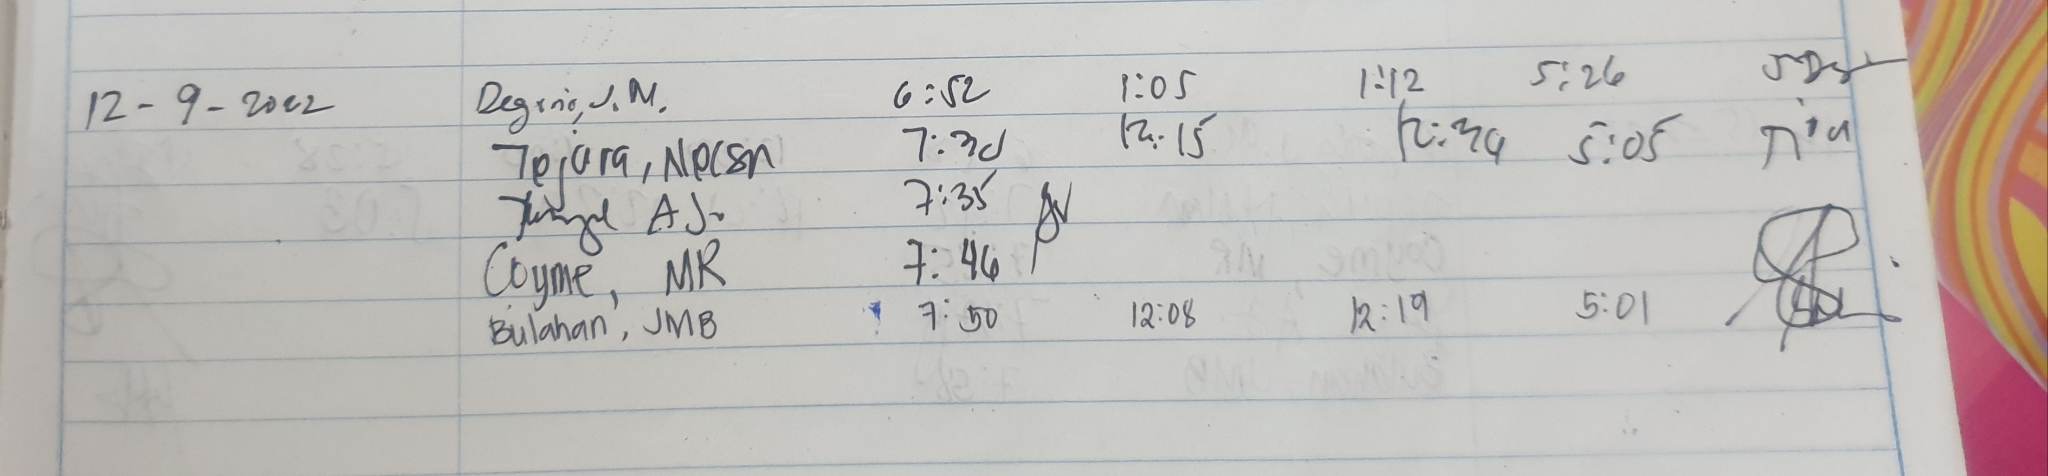 12-9-2022 Degirio, J.M. 6:52 1:05 1:12 5:26
Tejara, Nelsn 7:30 12:15 12:34 5:05
A.J. 7:35
Coyme, MR 7:46
Bulahan, JMB 7:50 12:08 12:19 5:01